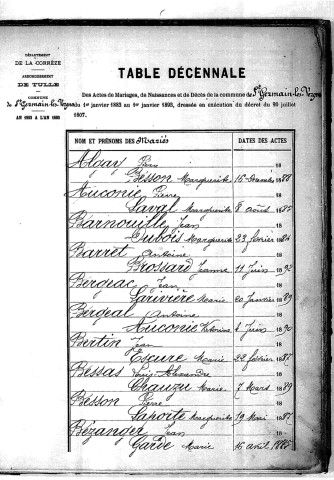 DÉPARTEMENT
DE LA CORRÈZE
ARRONDISSEMENT
DE TULLE
COMMUNE
de St Germain-les-Vergnes
AN 1883 A L'AN 1893
TABLE DÉCENNALE
Des Actes de Mariages, de Naissances et de Décès de la commune de St Germain-les-Vergnes
du 1er janvier 1883 au 1er janvier 1893, dressée en exécution du décret du 20 juillet
1807.
NOM ET PRÉNOMS DES Mariés DATES DES ACTES
Algay 18
Besson Marguerite 1888
Auconie Pierre 18
Laval Marguerite 8 août 1887
Barnouille Jean 18
Dubois Marguerite 23 février 1884
Barret Antoine 18
Brossard Jeanne 11 Juin 1892
Bergeac Jean 18
Larivière Marie 20 Janvier 1889
Bergeal Antoine 18
Auconie Victorine 2 Juin 1890
Bertin Jean 18
Escure Marie 22 février 1887
Bessas Louis Alexandre 18
Crauzu Marie 7 Mars 1889
Besson Pierre 18
Laporte Marguerite 19 Mai 1887
Bézanger Jean 18
Garde Marie 16 avril 1885